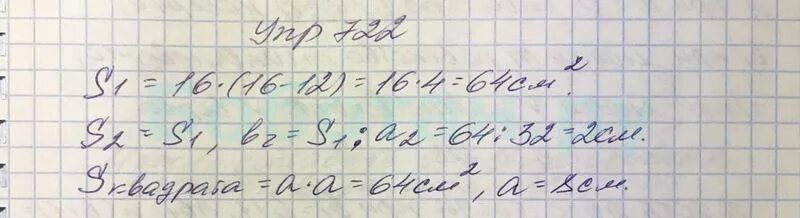 Упр 722
S1 = 16·(16-12) = 16·4 = 64 см².
S2 = S1, в2 = S1 : a2 = 64 : 32 = 2 см.
Sквадрата = a·a = 64 см², a = 8 см.